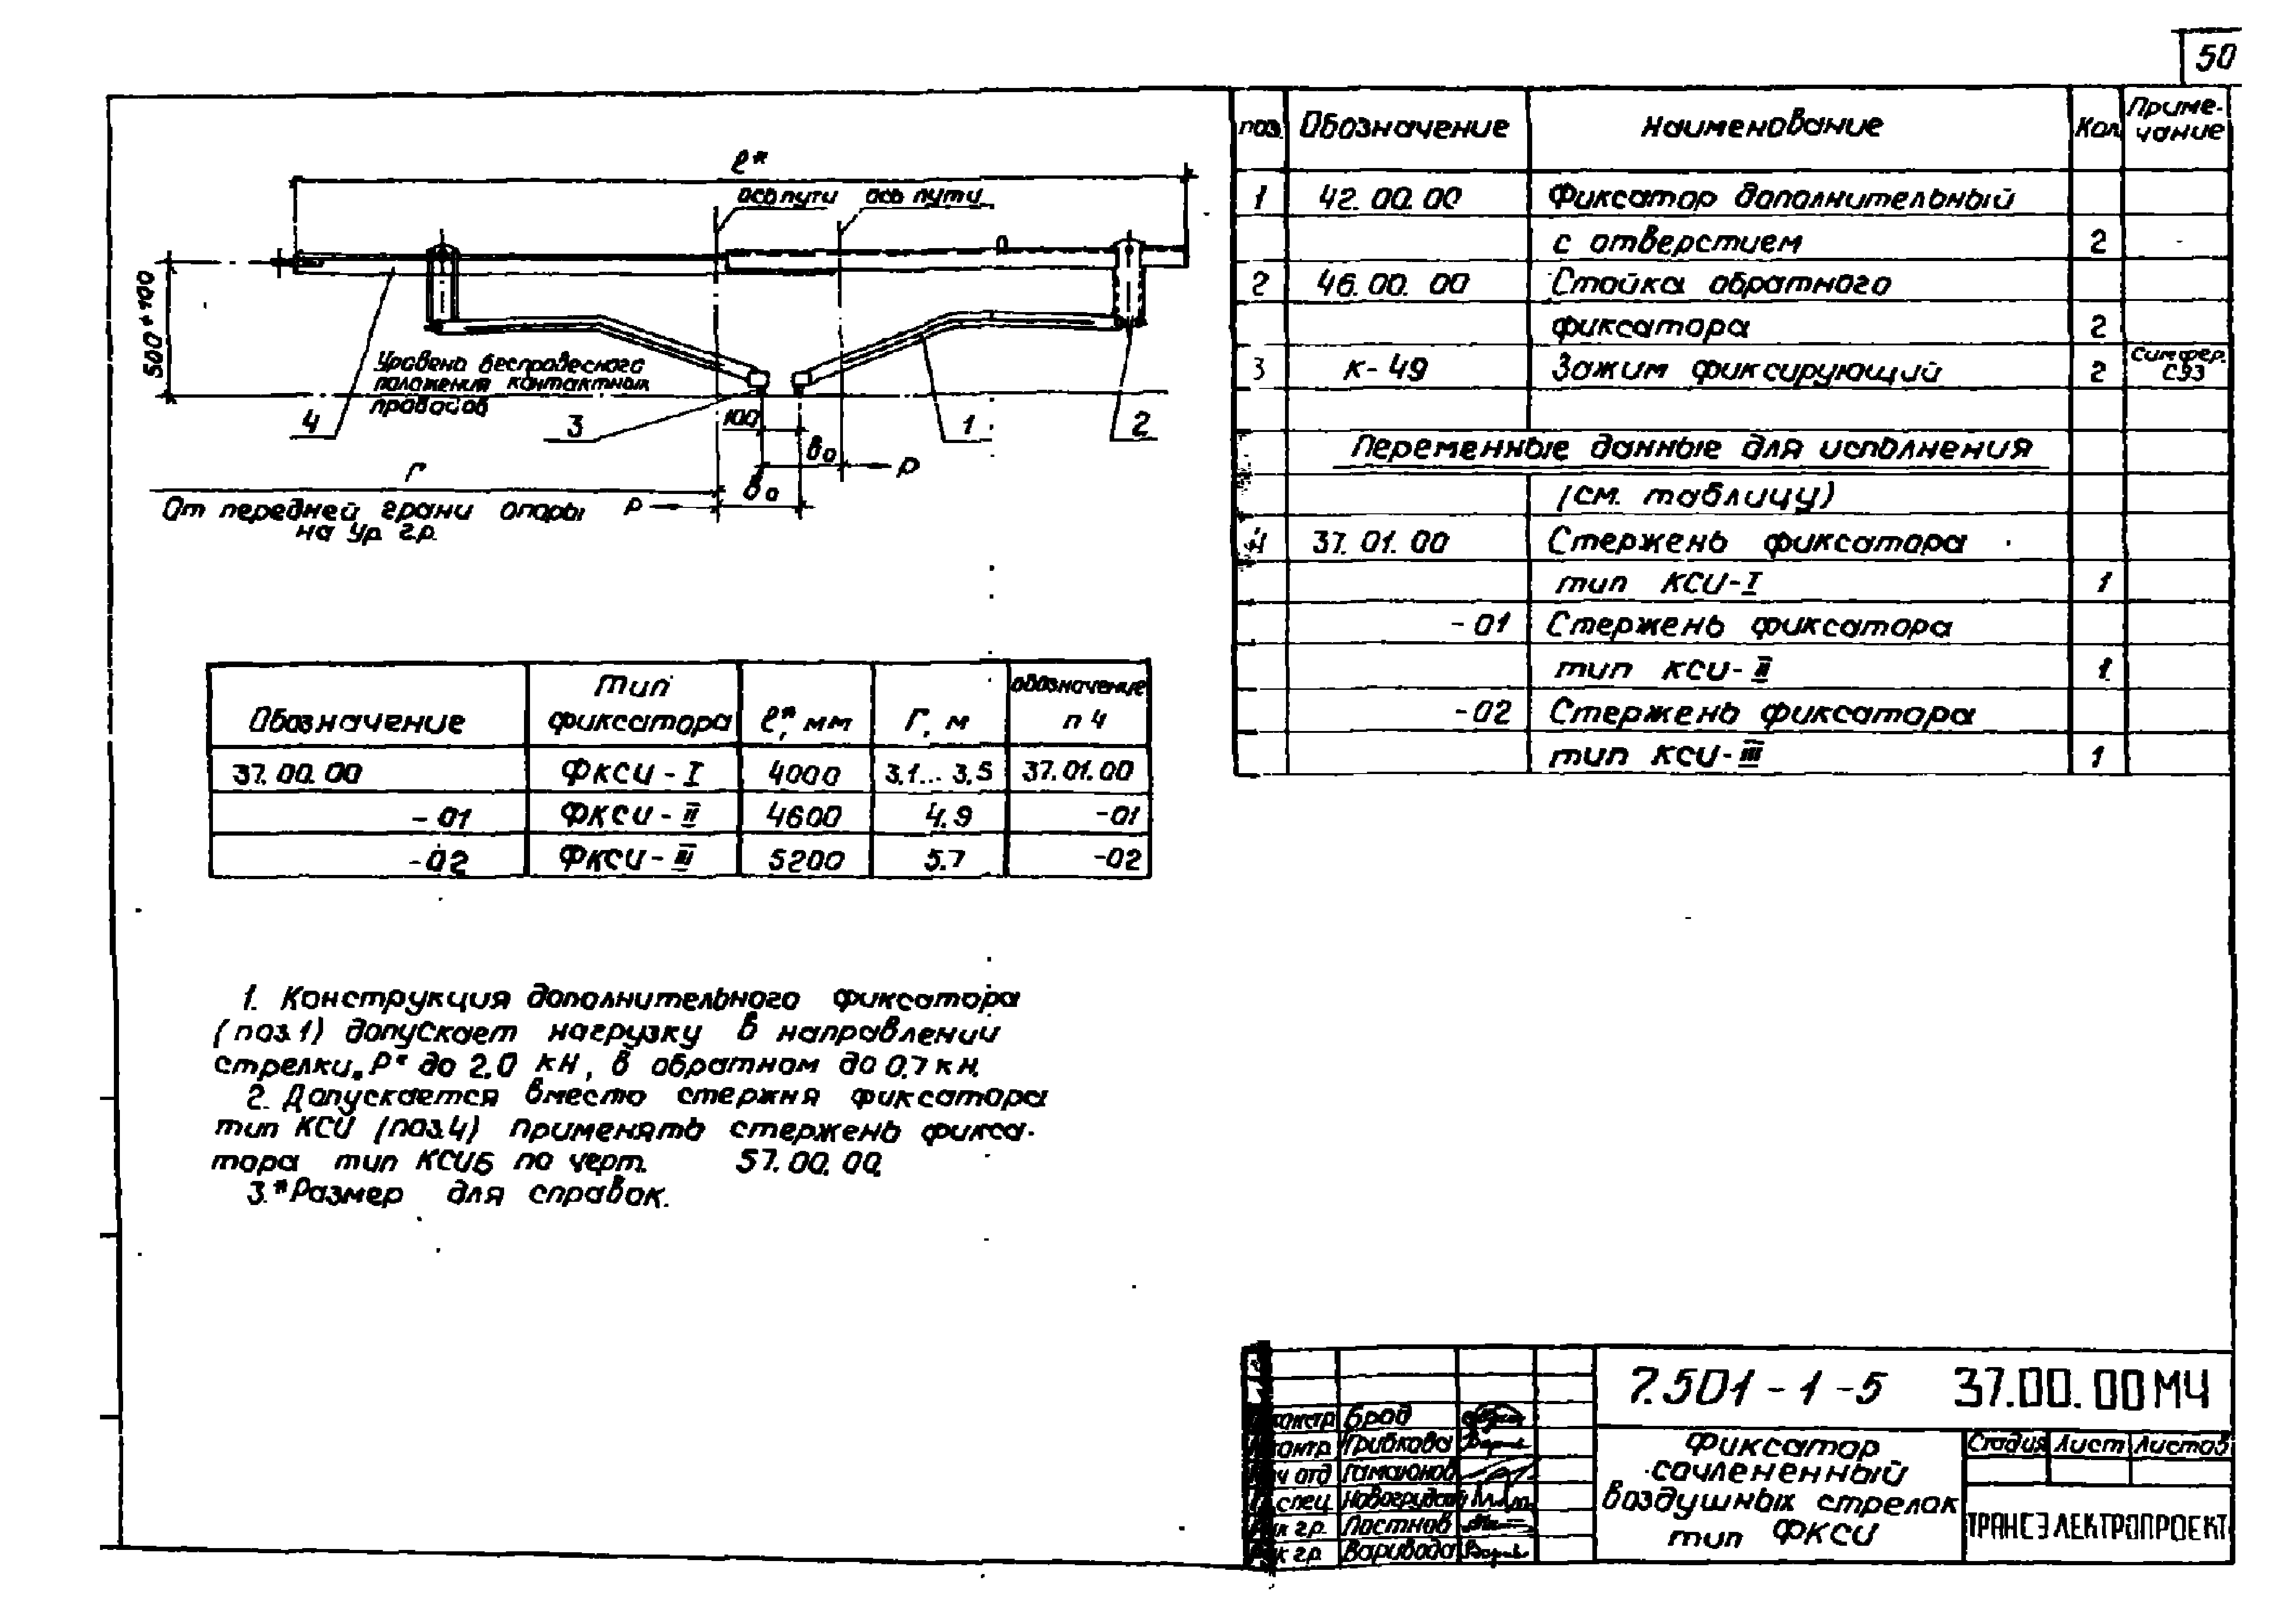 50
ℓ*
ось пути ось пути
500+100
Уровень беспровесного
положения контактных
проводов
4
3
100
1
2
в₀
Р
Г
в₀
От передней грани опоры Р
на ур. г.р.
поз. Обозначение Наименование Кол. Приме-
чание
1 42.00.00 Фиксатор дополнительный
с отверстием 2
2 46.00.00 Стойка обратного
фиксатора 2
3 К-49 Зажим фиксирующий 2 Симфер.
СЭЗ
Переменные данные для исполнения
(см. таблицу)
4 37.01.00 Стержень фиксатора
тип КСИ-I 1
-01 Стержень фиксатора
тип КСИ-II 1
-02 Стержень фиксатора
тип КСИ-III 1
Обозначение Тип
фиксатора ℓ*, мм Г, м обозначение
п 4
37.00.00 ФКСИ-I 4000 3.1...3.5 37.01.00
-01 ФКСИ-II 4600 4.9 -01
-02 ФКСИ-III 5200 5.7 -02
1. Конструкция дополнительного фиксатора
(поз.1) допускает нагрузку в направлении
стрелки „Р" до 2.0 кН, в обратном до 0.7 кН.
2. Допускается вместо стержня фиксатора
тип КСИ (поз.4) применять стержень фикса-
тора тип КСИБ по черт. 57.00.00.
3.*Размер для справок.
7.501-1-5 37.00.00МЧ
контр Брод
контр. Грибкова
ч отд Гамаюнов
спец Новогрудский
к гр. Постнов
к гр. Варивода
Фиксатор
сочлененный
воздушных стрелок
тип ФКСИ
Стадия Лист Листов
ТРАНСЭЛЕКТРОПРОЕКТ